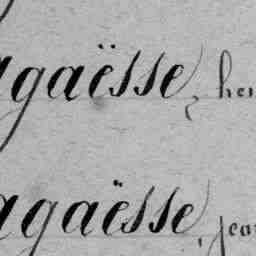 agaësse, hen
agaësse, jean